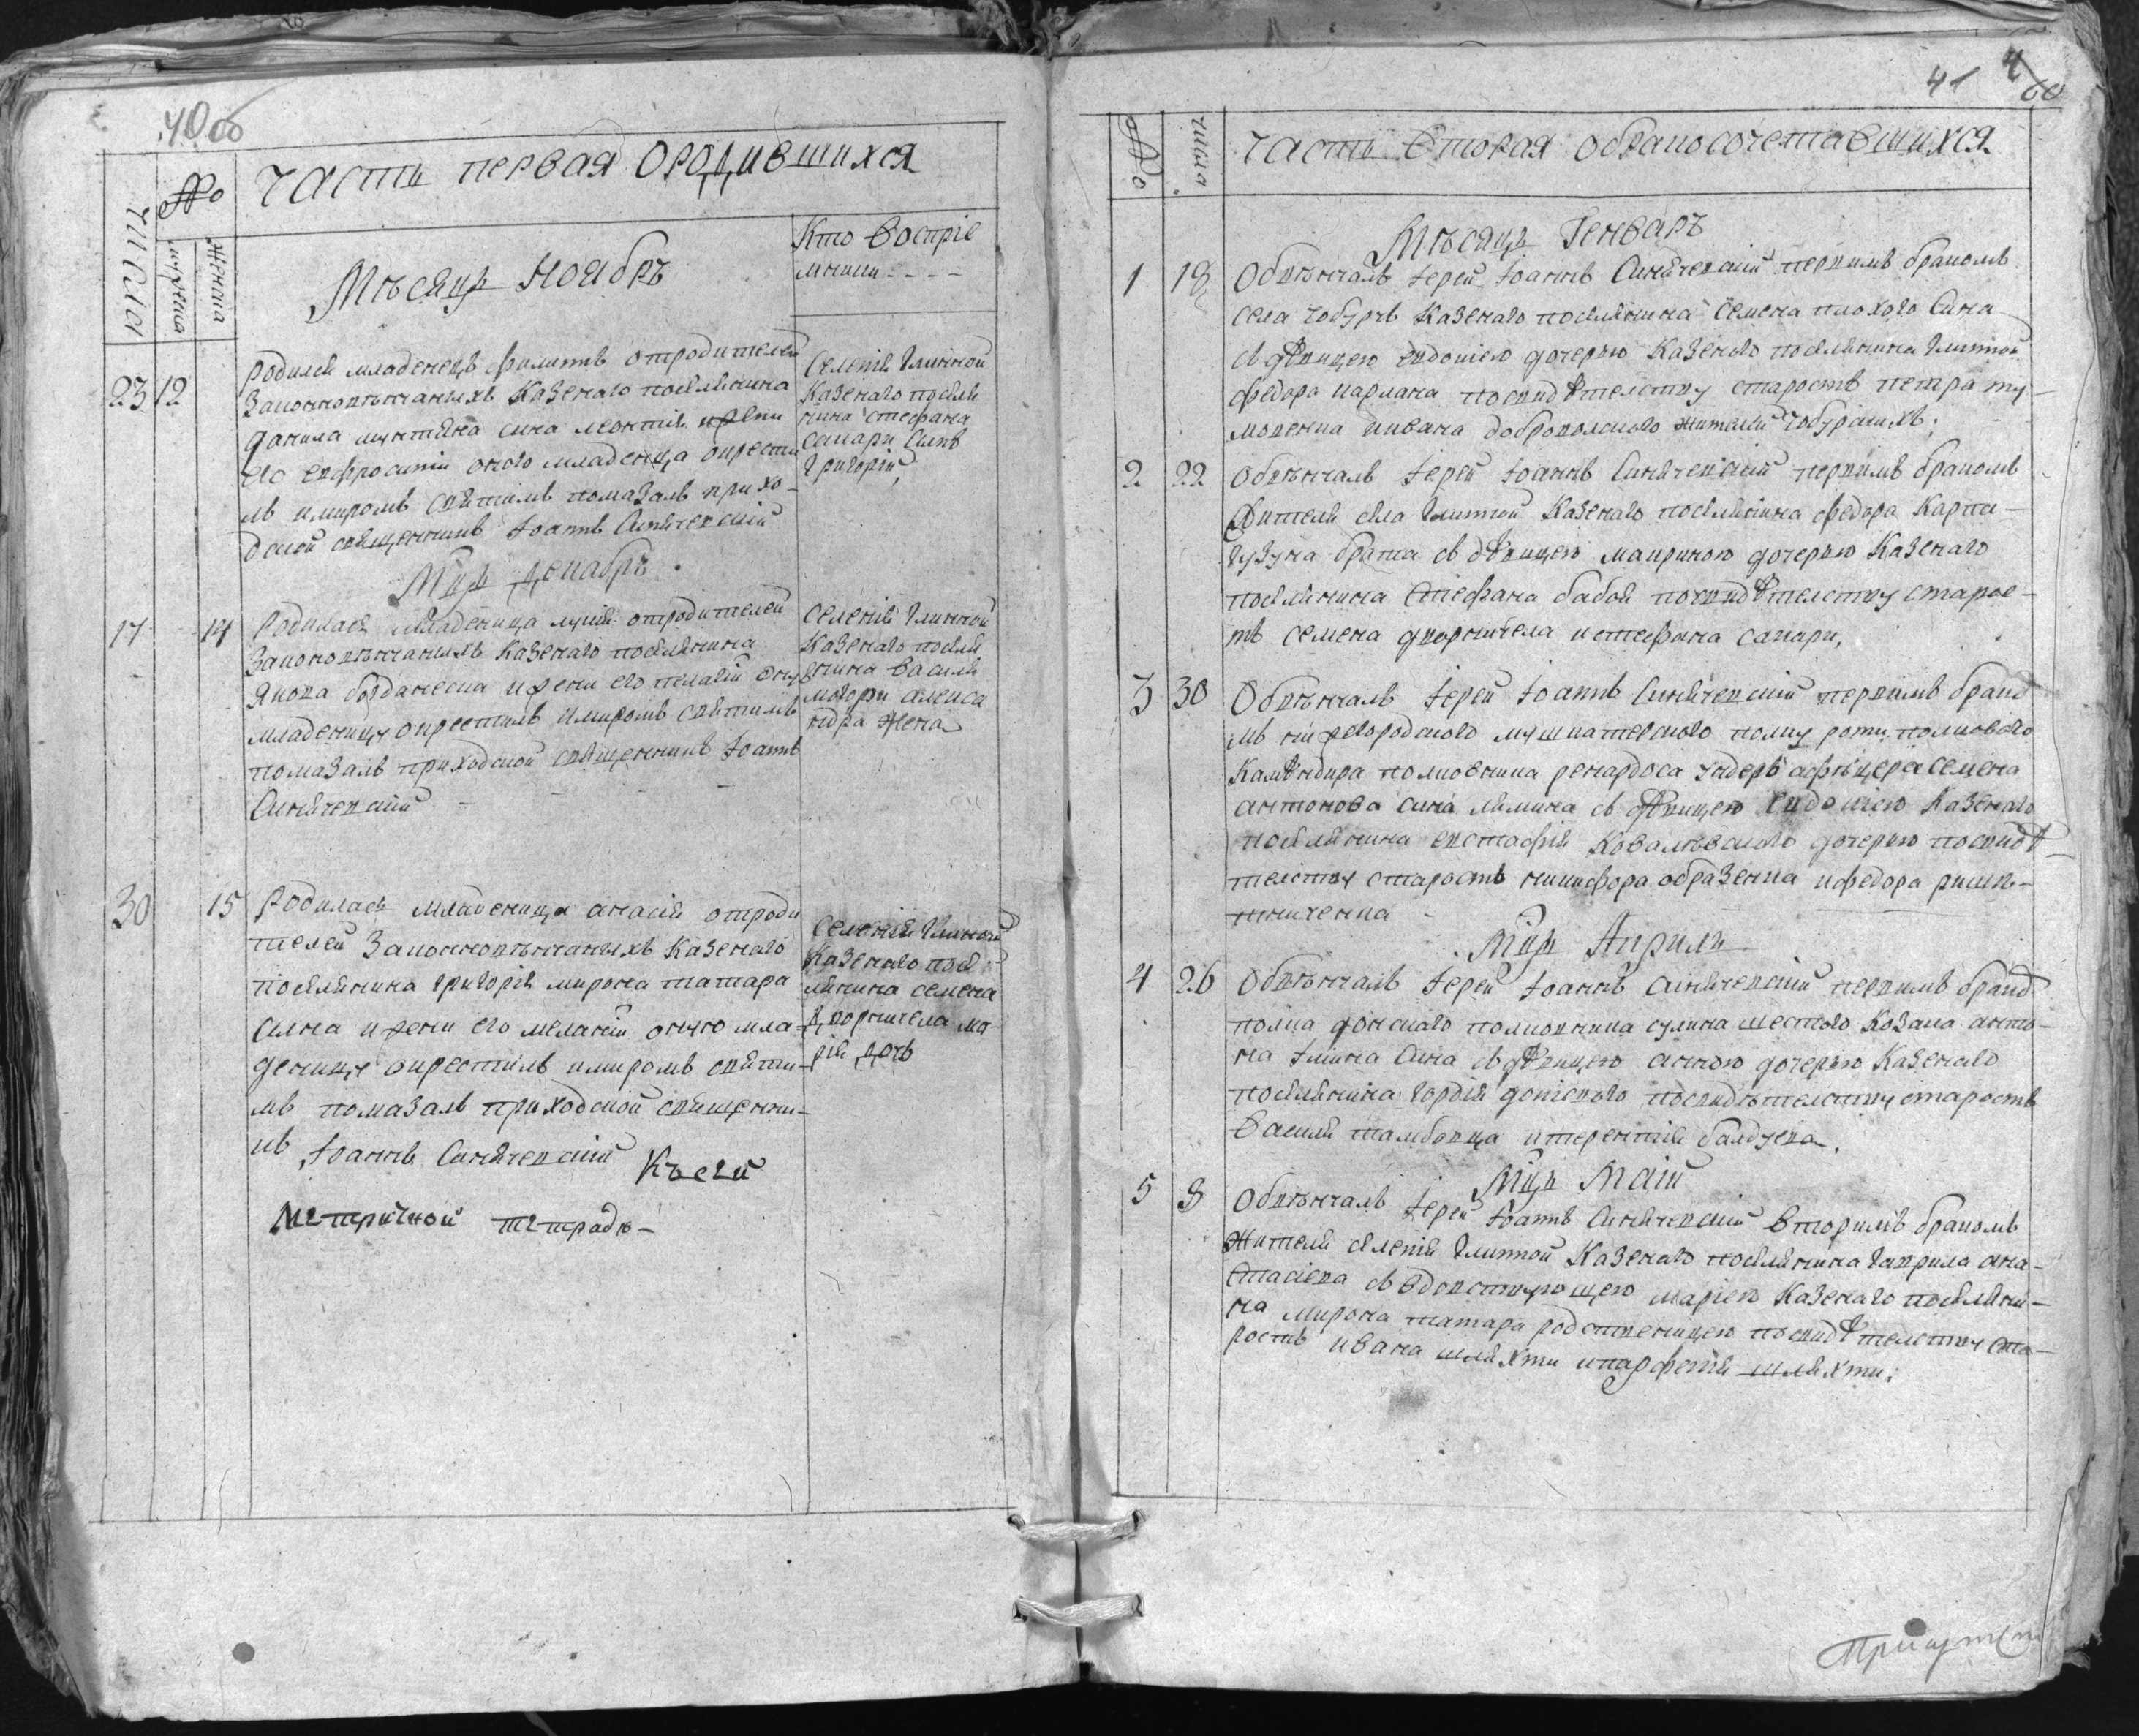 40 об
числа
№
мужеска
женска
Часть первая Ородившихся
Кто воспріе
мники - - - -
Мѣсяцъ Ноябрь
23 12
родился младенецъ филиппъ отродителей
Законновѣнчаныхъ Казенаго поселянина
данила мунтяна сина леонтія ижени
его евфросиніи оного младенца окрести
лъ имиромъ святимъ помазалъ прихо-
дской священникъ Іоаннъ Синячевскій
Селенія Глинной
Казенаго поселя
нина стефана
сакари синъ
григорій,
Мцъ декабрь
17 14
Родилася младеница лукія отродителей
Законовѣнчаныхъ Казенаго поселянина
якова богданеска ижени его пелагіи ону
младеницу окрестилъ имиромъ святимъ
помазалъ приходской священникъ Іоаннъ
Синячевскій
Селенія Глинной
Казенаго поселя
нина василя
алекса
ндра жена
30 15
Родилась младеница анасія отроди
телей Законновѣнчаныхъ Казенаго
поселянина григорія мирона татара
сина ижени его меланіи оную мла-
деницу окрестилъ имиромъ святи-
мъ помазалъ приходской священни-
къ Іоаннъ Синячевскій
Селенія Глиной
Казенаго посе
лянина семена
дворничела ма
рія дочь
Къ сей
метричной тетради-
41
60
№
числа
Часть Вторая обракосочетавшихся
Мѣсяцъ Генварь
1 18 Обвѣнчалъ Іерей Іоаннъ Синячевскій первимъ бракомъ
села чобурчъ Казенаго поселянина Семена плохого Сина
съ дѣвицею евдокіею дочерью Казеного поселянина глинной
федора царлана посвидѣтелству старостъ петра ту-
моненка иивана доброволского жителей чобурскихъ;
2 22 Обвѣнчалъ Іерей Іоаннъ Синячевскій первимъ бракомъ
жителя села Глинной Казенаго поселянина федора Карпа-
гузуна брата съ дѣвицею мавриною дочерью Казенаго
поселянина Стефана бабой посвидѣтелству старос-
тъ семена дворничела истефана сакари,
3 30 Обвѣнчалъ Іерей Іоаннъ Синячевскій первимъ брако
мъ нижегородского мушкатерского полку роти полкового
Камѣндира полковника ренардоса ундеръ афѣцера семена
антонова сина лямина съ дѣвицею евдокіею Казенаго
поселянина евстафія Ковалѣвского дочерью посвидѣ-
телству старостъ никифора образенка ифедора ришк-
пниченка
Мцъ Априль
4 26 Обвѣнчалъ Іерей Іоаннъ Синячевскій первимъ брако
полка донского полковника сулина шестого Козака анто-
на Ілина Сина съ дѣвицею анною дочерью Казенаго
поселянина гордія посвидѣтелству старостъ
Василя тамбовца итерентія балдуева.
Мцъ Маій
5 8 Обвѣнчалъ Іерей Іоаннъ Синячевскій вторимъ бракомъ
жителя селенія Глинной Казенаго поселянина гаврила ана-
стасіева съ вдовствующею маріею Казенаго поселяни-
на мирона татара родственицею посвидѣтелству ста-
ростъ ивана шляхти ипарфенія шляхти;